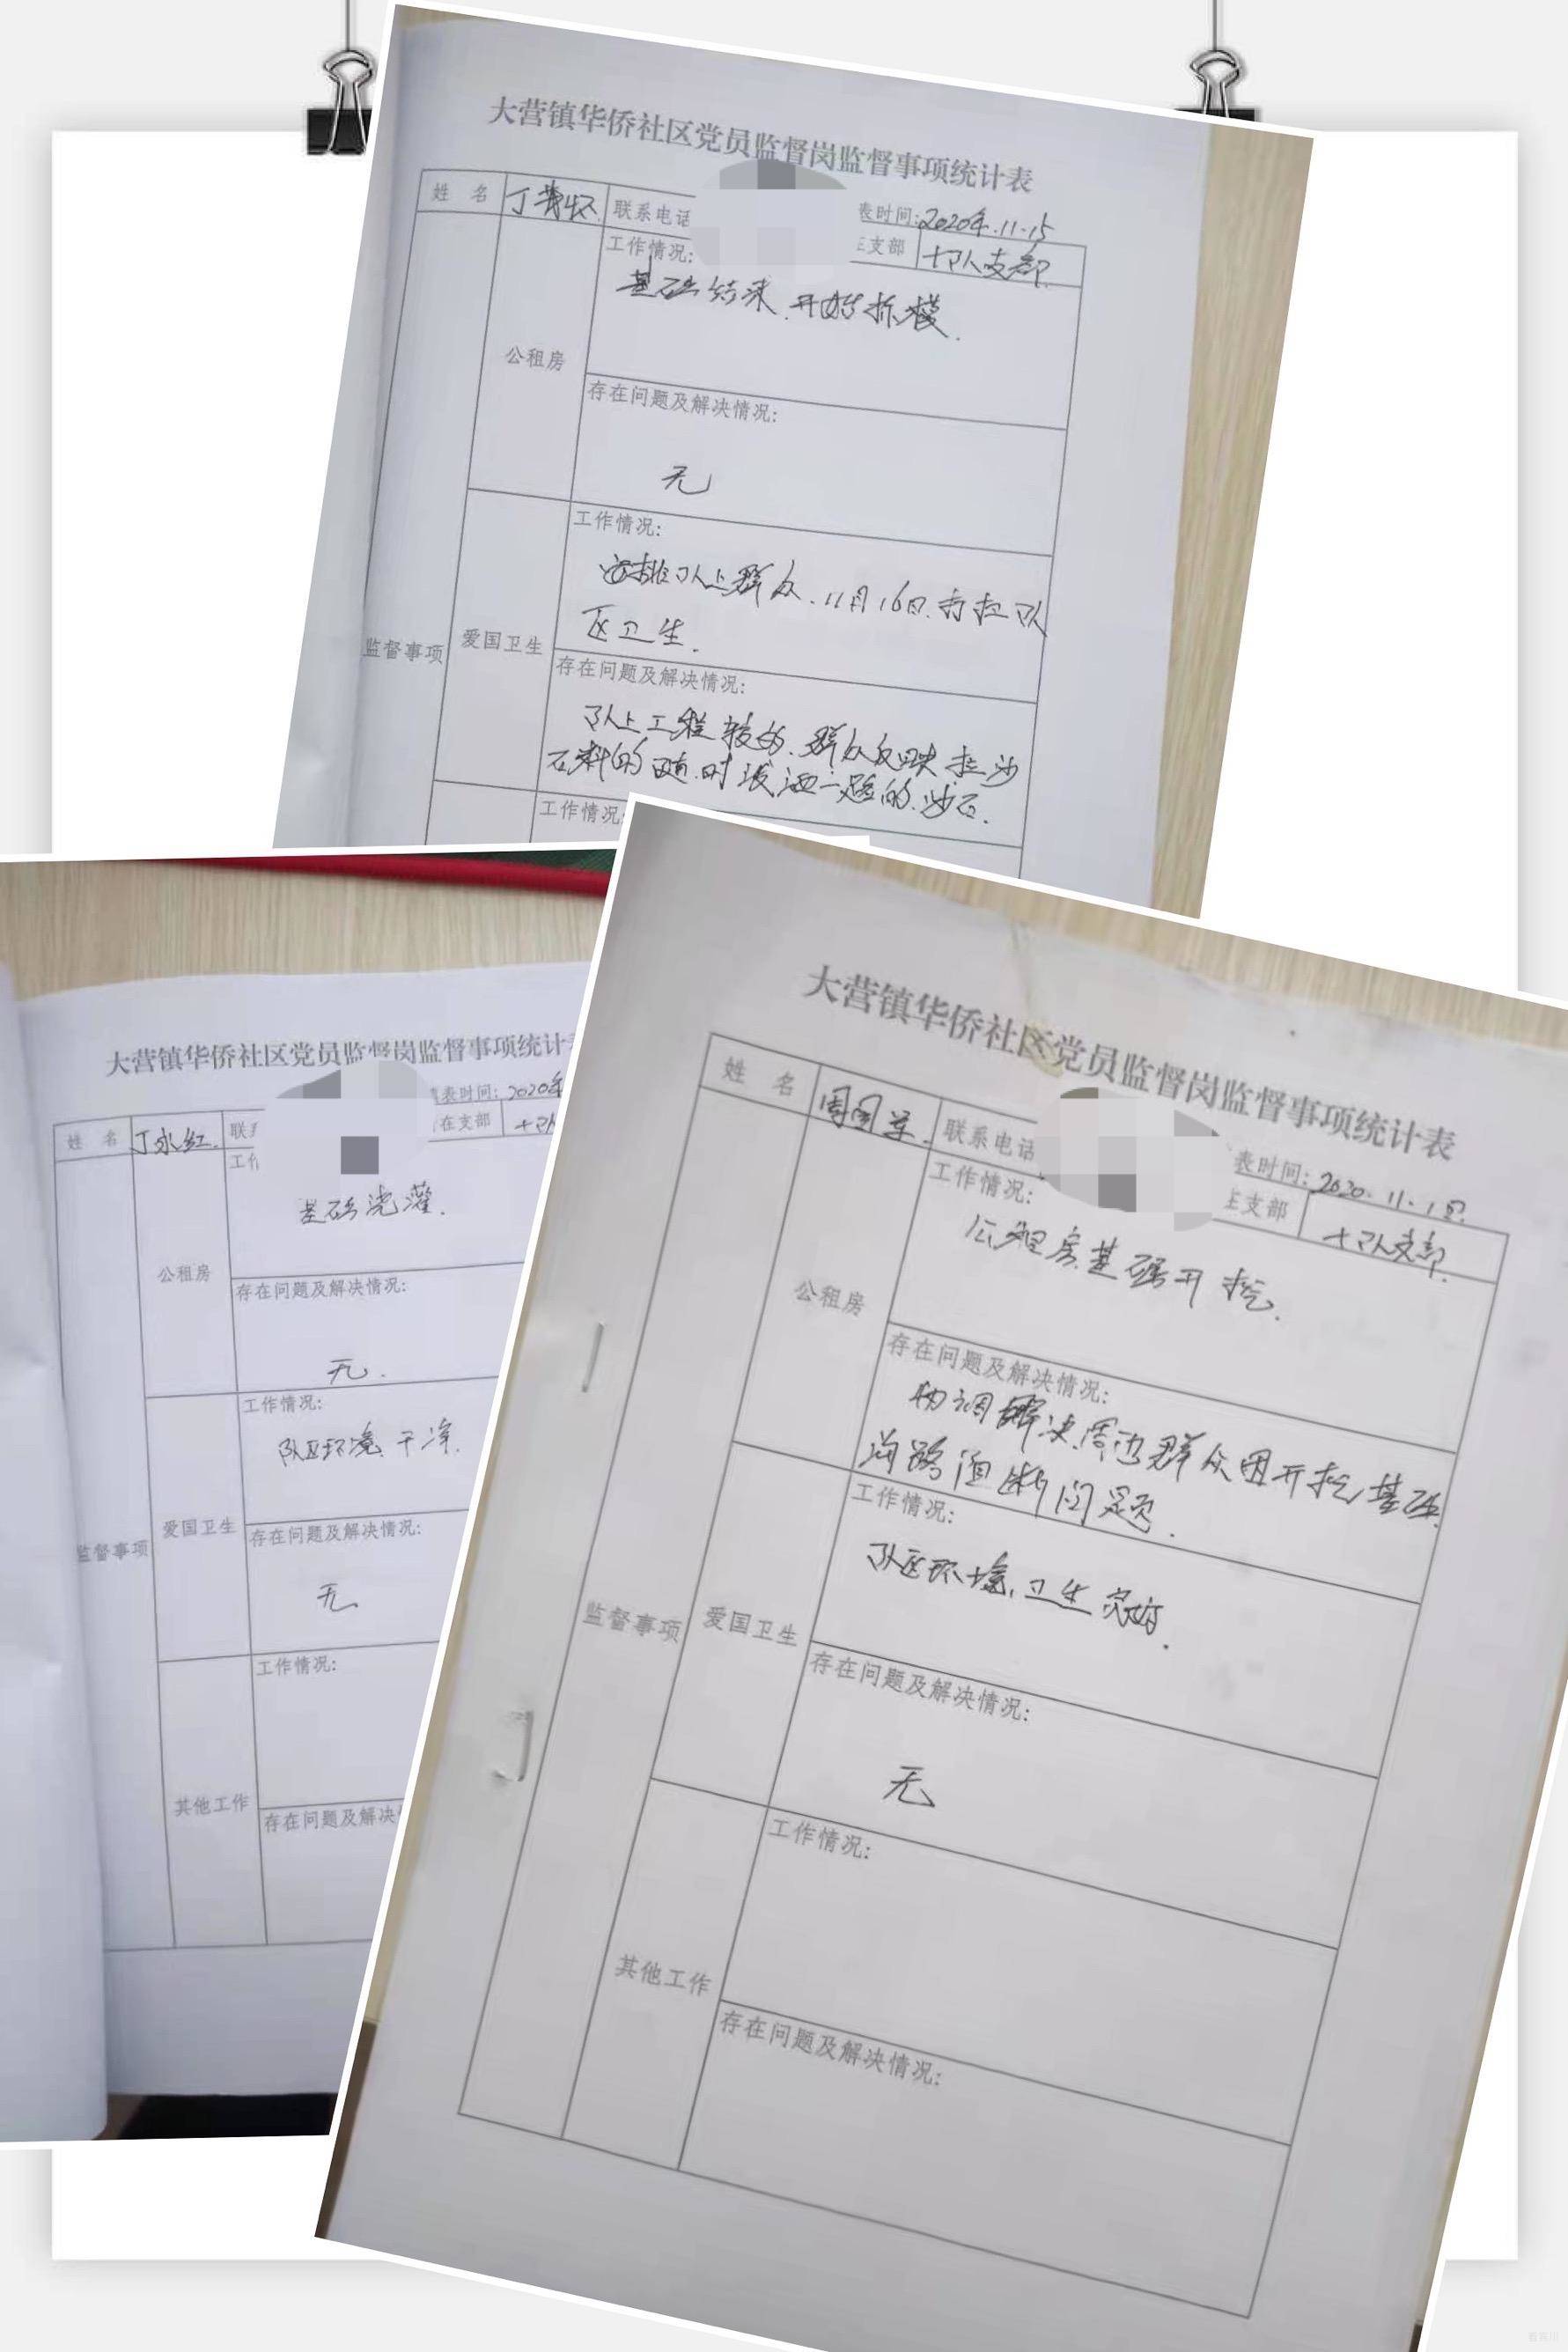 大营镇华侨社区党员监督岗监督事项统计表
表时间:2020年.11.15
姓 名 丁 联系电话 支部 十队支部.
监督事项
公租房
工作情况:
基础结束.开始拆模.
存在问题及解决情况:
无
爱国卫生
工作情况:
安排队上群众.11月16日.打扫队
区卫生.
存在问题及解决情况:
队上工程较多.群众反映拉沙
石料的 时 洒一路的.沙石.
工作情况
大营镇华侨社区党员监督岗监督事项统计
表时间:2020年
姓 名 丁永红. 联系 在支部 十队
监督事项
公租房
工作
基础浇灌.
存在问题及解决情况:
无.
爱国卫生
工作情况:
队区环境干净.
存在问题及解决情况:
无
其他工作
工作情况:
存在问题及解决
大营镇华侨社区党员监督岗监督事项统计表
表时间:2020.11.1日
姓 名 周国 联系电话 支部 十队支部.
监督事项
公租房
工作情况:
公租房基础开挖.
存在问题及解决情况:
协调解决.周边群众因开挖基础.
沟路阻断问题.
爱国卫生
工作情况:
队区环境.卫生完好.
存在问题及解决情况:
无
其他工作
工作情况:
存在问题及解决情况: